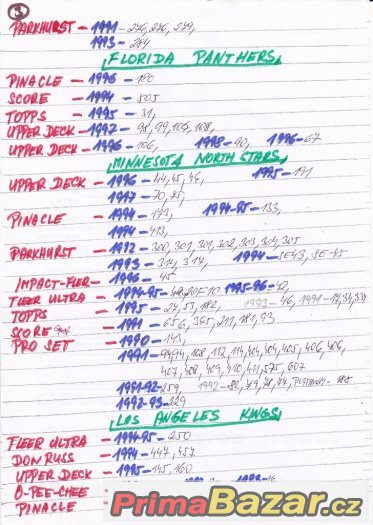 3
PARKHURST - 1991 - 276, 276, 279,
1993 - 284
FLORIDA PANTHERS
PINACLE - 1996 - 180
SCORE - 1994 - 505
TOPPS - 1995 - 31,
UPPER DECK - 1992 - 98, 99, 105, 108,
UPPER DECK - 1996 - 106, 1998 - 90, 1996 - 67
MINNESOTA NORTH STARS
UPPER DECK - 1996 - 44, 45, 46, 1995 - 171
1997 - 70, 75,
PINACLE - 1994 - 193, 1994-95 - 133,
1994 - 413,
PARKHURST - 1992 - 300, 301, 301, 302, 303, 304, 305
1993 - 314, 317, 1994 - SE43, SE-45
IMPACT-FLER - 1996 - 45
FLEER ULTRA - 1994-95 - 10, 1995-96 - 42,
TOPPS - 1995 - 27, 53, 182, 1992 - 46, 1991 - 17, 34, 334
SCORE - 1991 - 656, 365, 211, 181, 93
PRO SET - 1990 - 143,
1991 - 94, 168, 112, 114, 404, 404, 405, 406, 406,
407, 408, 409, 410, 411, 575, 607
1991-92 - 259, 1992 - 82, 79, 78, 84, PLATINUM -
1992-93 - 229
LOS ANGELES KINGS
FLEER ULTRA - 1994-95 - 250
DONRUSS - 1994 - 447, 457
UPPER DECK - 1995 - 145, 160
O-PEE-CHEE
PINACLE -
PrimaBazar.cz